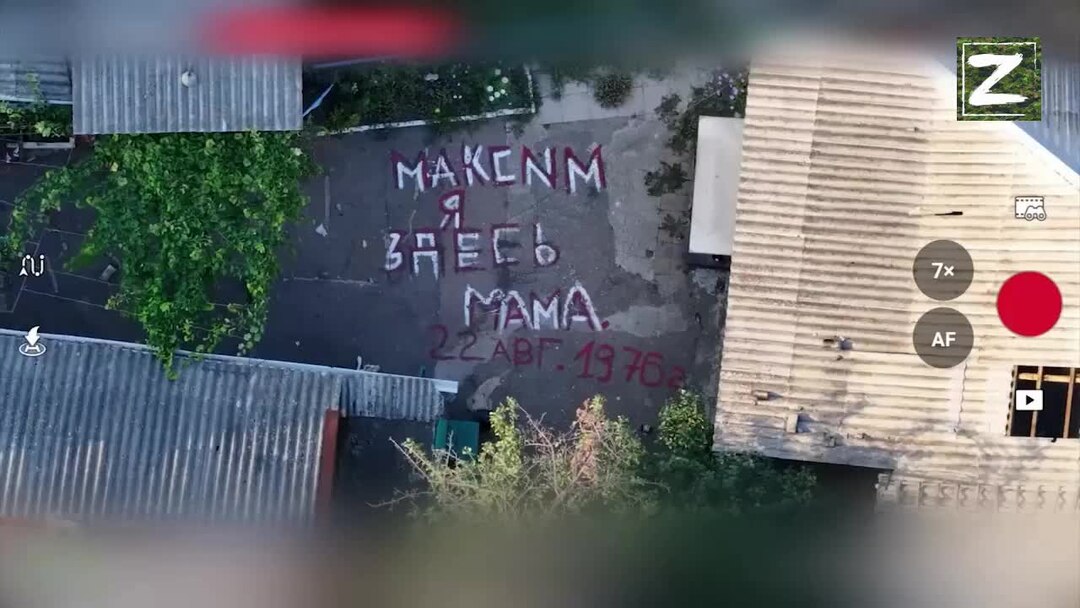 Z
МАКСИМ
Я
ЗДЕСЬ
МАМА.
22 АВГ. 1976г
7×
AF